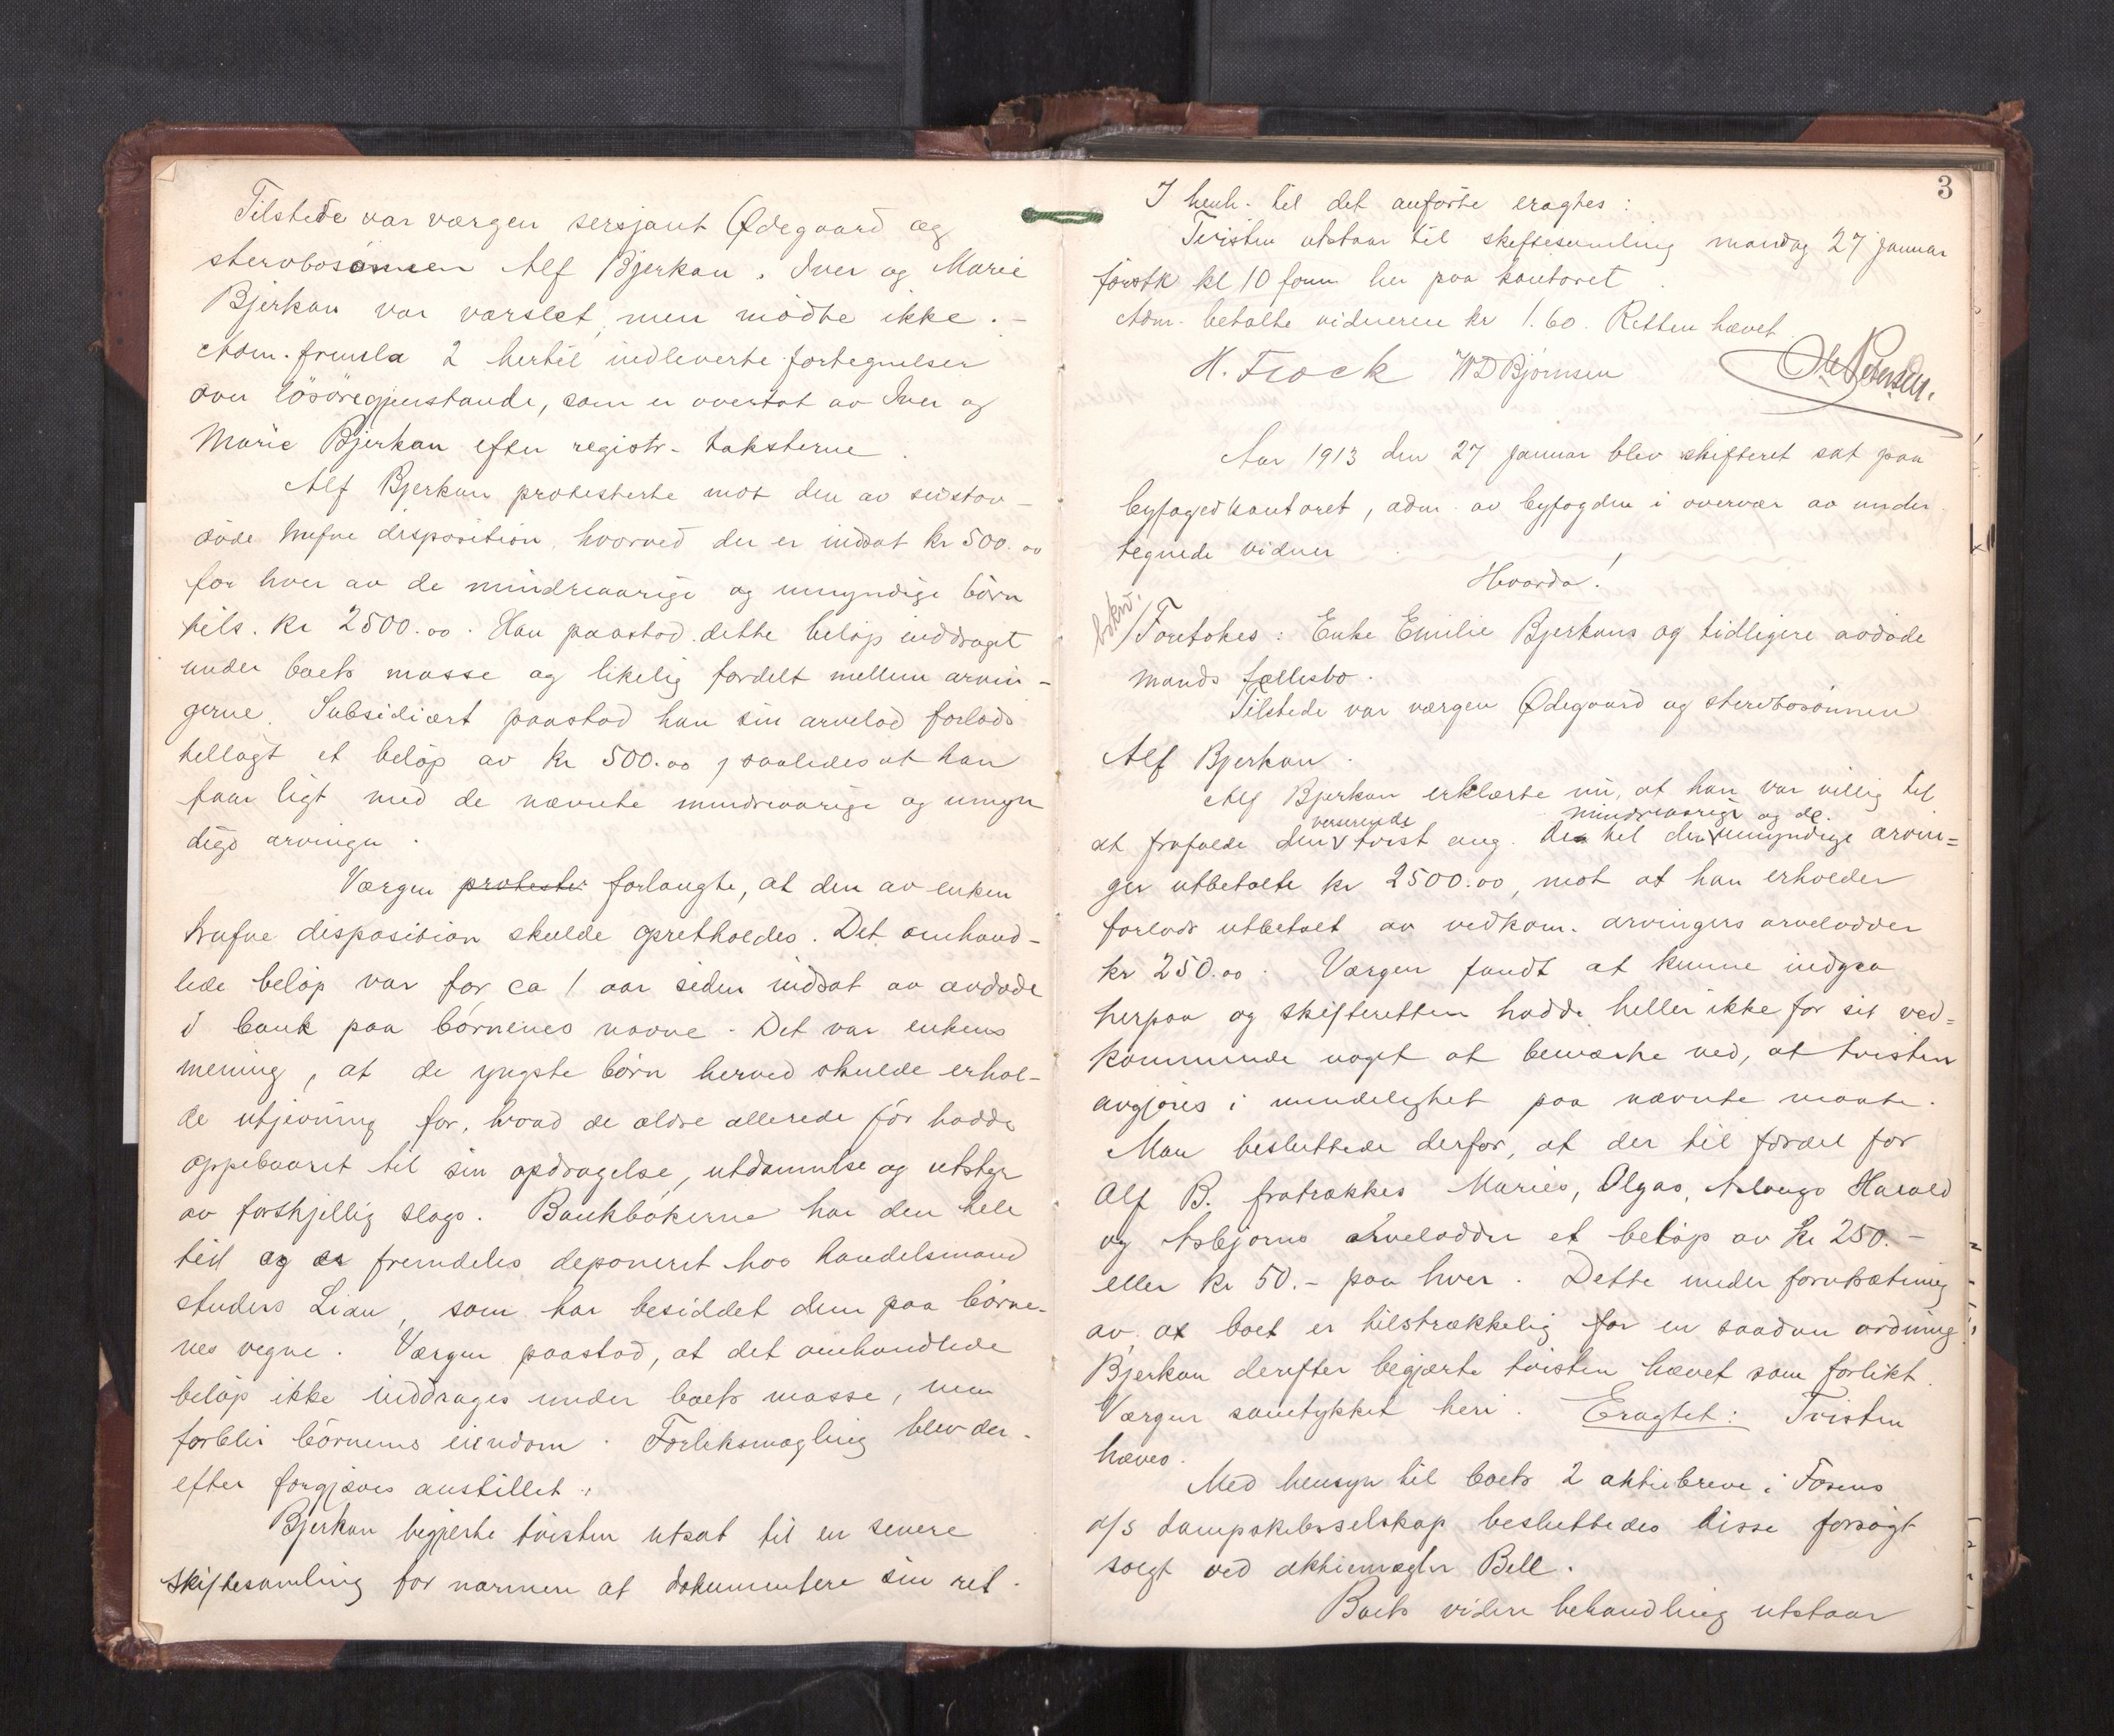 Tilstede var værgen sersjant Ødegaard og
stervbosönnen Alf Bjerkan. Iver og Marie
Bjerkan var varslet, men mödte ikke. –
Adm. fremla 2 hertil indleverte fortegnelser
over lösöregjenstande, som er overtat av Iver og
Marie Bjerkan efter registr. taksterne.
Alf Bjerkan protesterte mot den av sidstav-
döde trufne disposition, hvorved der er indsat kr 500.00
for hver av de mindreaarige og umyndige börn
tils. kr 2500.00. Han paastod dette belöp inddraget
under boets masse og likelig fordelt mellem arvin-
gerne. Subsidiært paastod han sin arvelod forlods
tillagt et belöp av kr 500.00, saaledes at han
faar ligt med de nævnte mindreaarige og umyn
dige arvinger.
Værgen protester forlangte, at den av enken
trufne disposition skulde opretholdes. Det omhand-
lede belöp var for ca 1 aar siden indsat av avdöde
i bank paa börnenes navne. Det var enkens
mening, at de yngste börn herved skulde erhol-
de utjevning for, hvad de ældre allerede för hadde
oppebaaret til sin opdragelse, utdannelse og utstyr
av forskjellig slags. Bankbökerne har den hele
tid og er fremdeles deponeret hos handelsmand
Anders Lian, som har besiddet dem paa börne-
nes vegne. Værgen paastod, at det omhandlede
belöp ikke inddrages under boets masse, men
forblir börnenes eiendom. Forliksmægling blev der-
efter forgjæves anstillet.
Bjerkan begjerte tvisten utsat til en senere
skiftesamling for nærmere at dokumentere sin ret.
3
I henh. til det anförte eragtes:
Tvisten utstaar til skiftesamling mandag 27 januar
förstk kl 10 form her paa kontoret.
Adm. betalte vidnerne kr 1.60. Retten hævet.
H. Frock WD Björnsen Ole Petersen.
Aar 1913 den 27 januar blev skifteret sat paa
byfogedkontoret, adm. av byfogden i overvær av under
tegnede vidner
Hvorda!
/Foretokes: Enke Emilie Bjerkans og tidligere avdöde
mands fællesbo.
Tilstede var værgen Ødegaard og stervbosönnen
Alf Bjerkan.
Alf Bjerkan erklærte nu, at han var villig til
verserende mindreaarige og de.
at frafalde den tvist ang. de til den umyndige arvin=
ger utbetalte kr 2500.00, mot at han erholder
forlods utbetalt av vedkom. arvingers arvelodder
kr 250.00. Værgen fandt at kunne indgaa
herpaa og skifteretten hadde heller ikke for sit ved=
kommende noget at bemærke ved, at tvisten
avgjöres i mindelighet paa nævnte maate.
Man besluttede derfor, at der til fordel for
Alf B. fratrækkes Maries, Olgas, Aslaugs Harald
og Asbjörns arvelodder et belöp av kr 250.–
eller kr 50.– paa hver. Dette under forutsætning
av at boet er tilstrækkelig for en saadan ordning.
Bjerkan derefter begjærte tvisten hævet som forlikt.
Værgen samtykket heri. Eragtet: Tvisten
hæves.
Med hensyn til boets 2 aktiebreve i Fosens
a/s dampskibsselskap besluttedes disse forsögt
solgt ved aktiemægler Bell.
Boets videre behandling utstaar